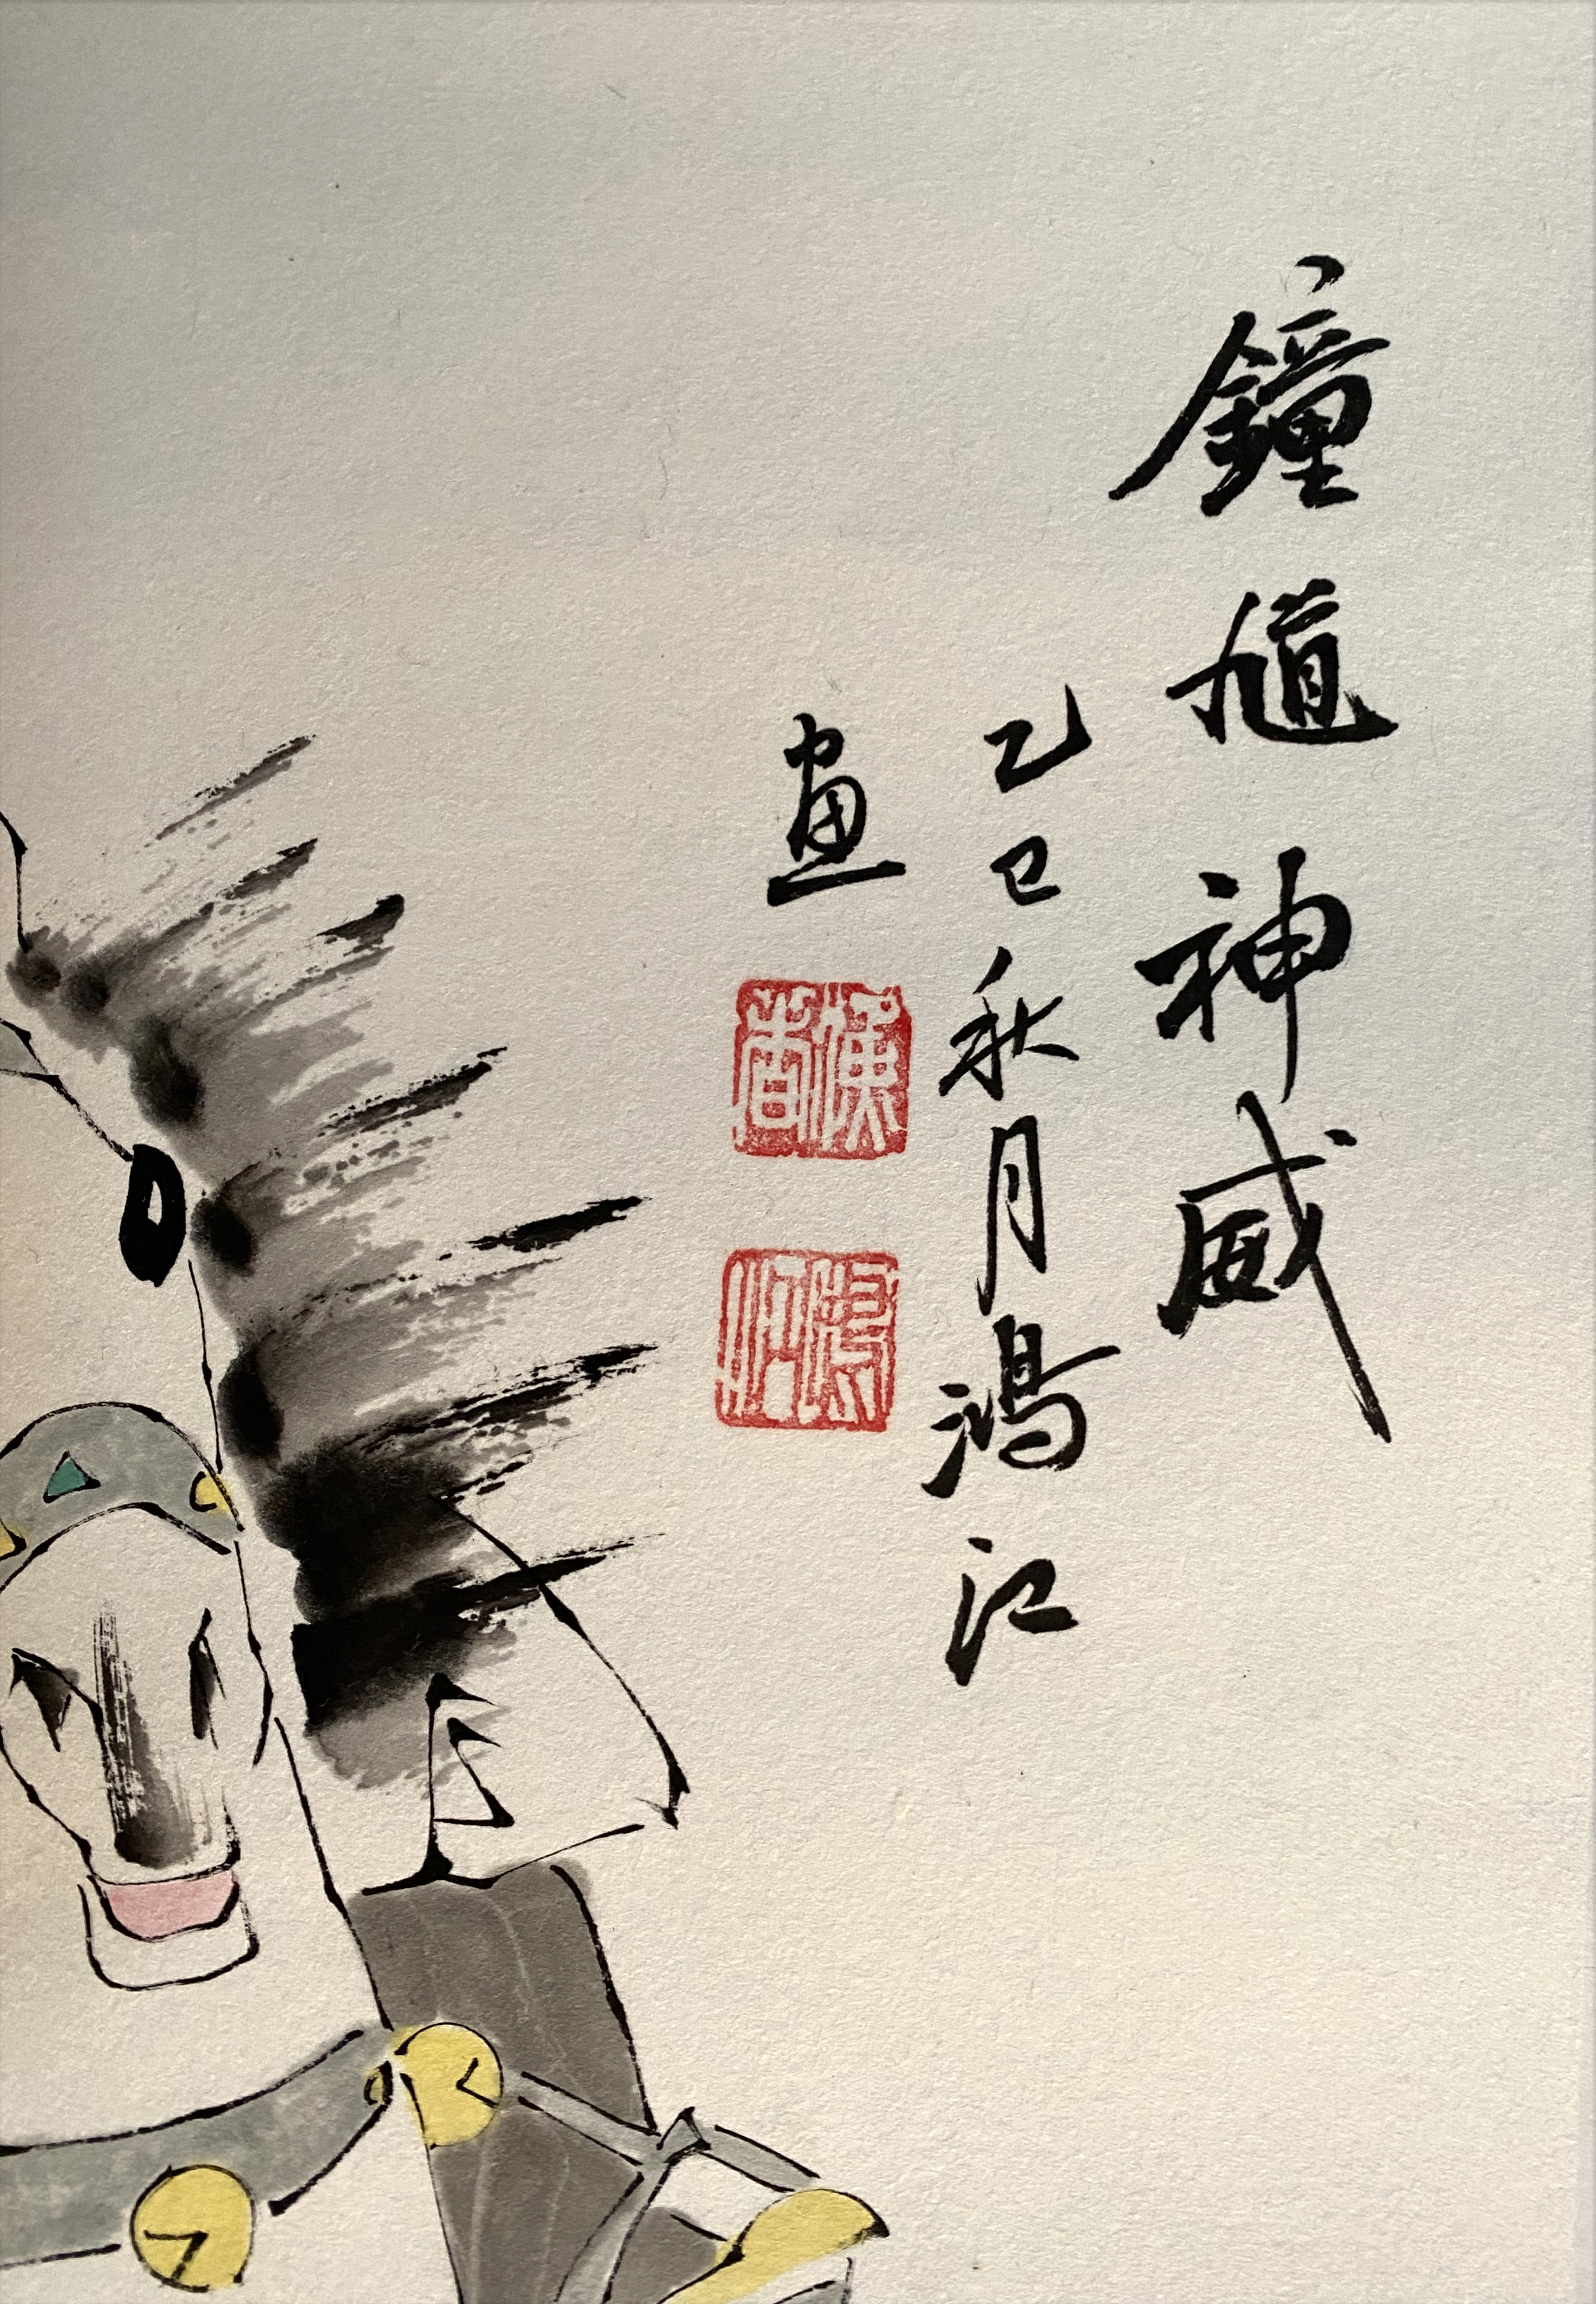 鐘馗神威
乙巳秋月鴻江
畫